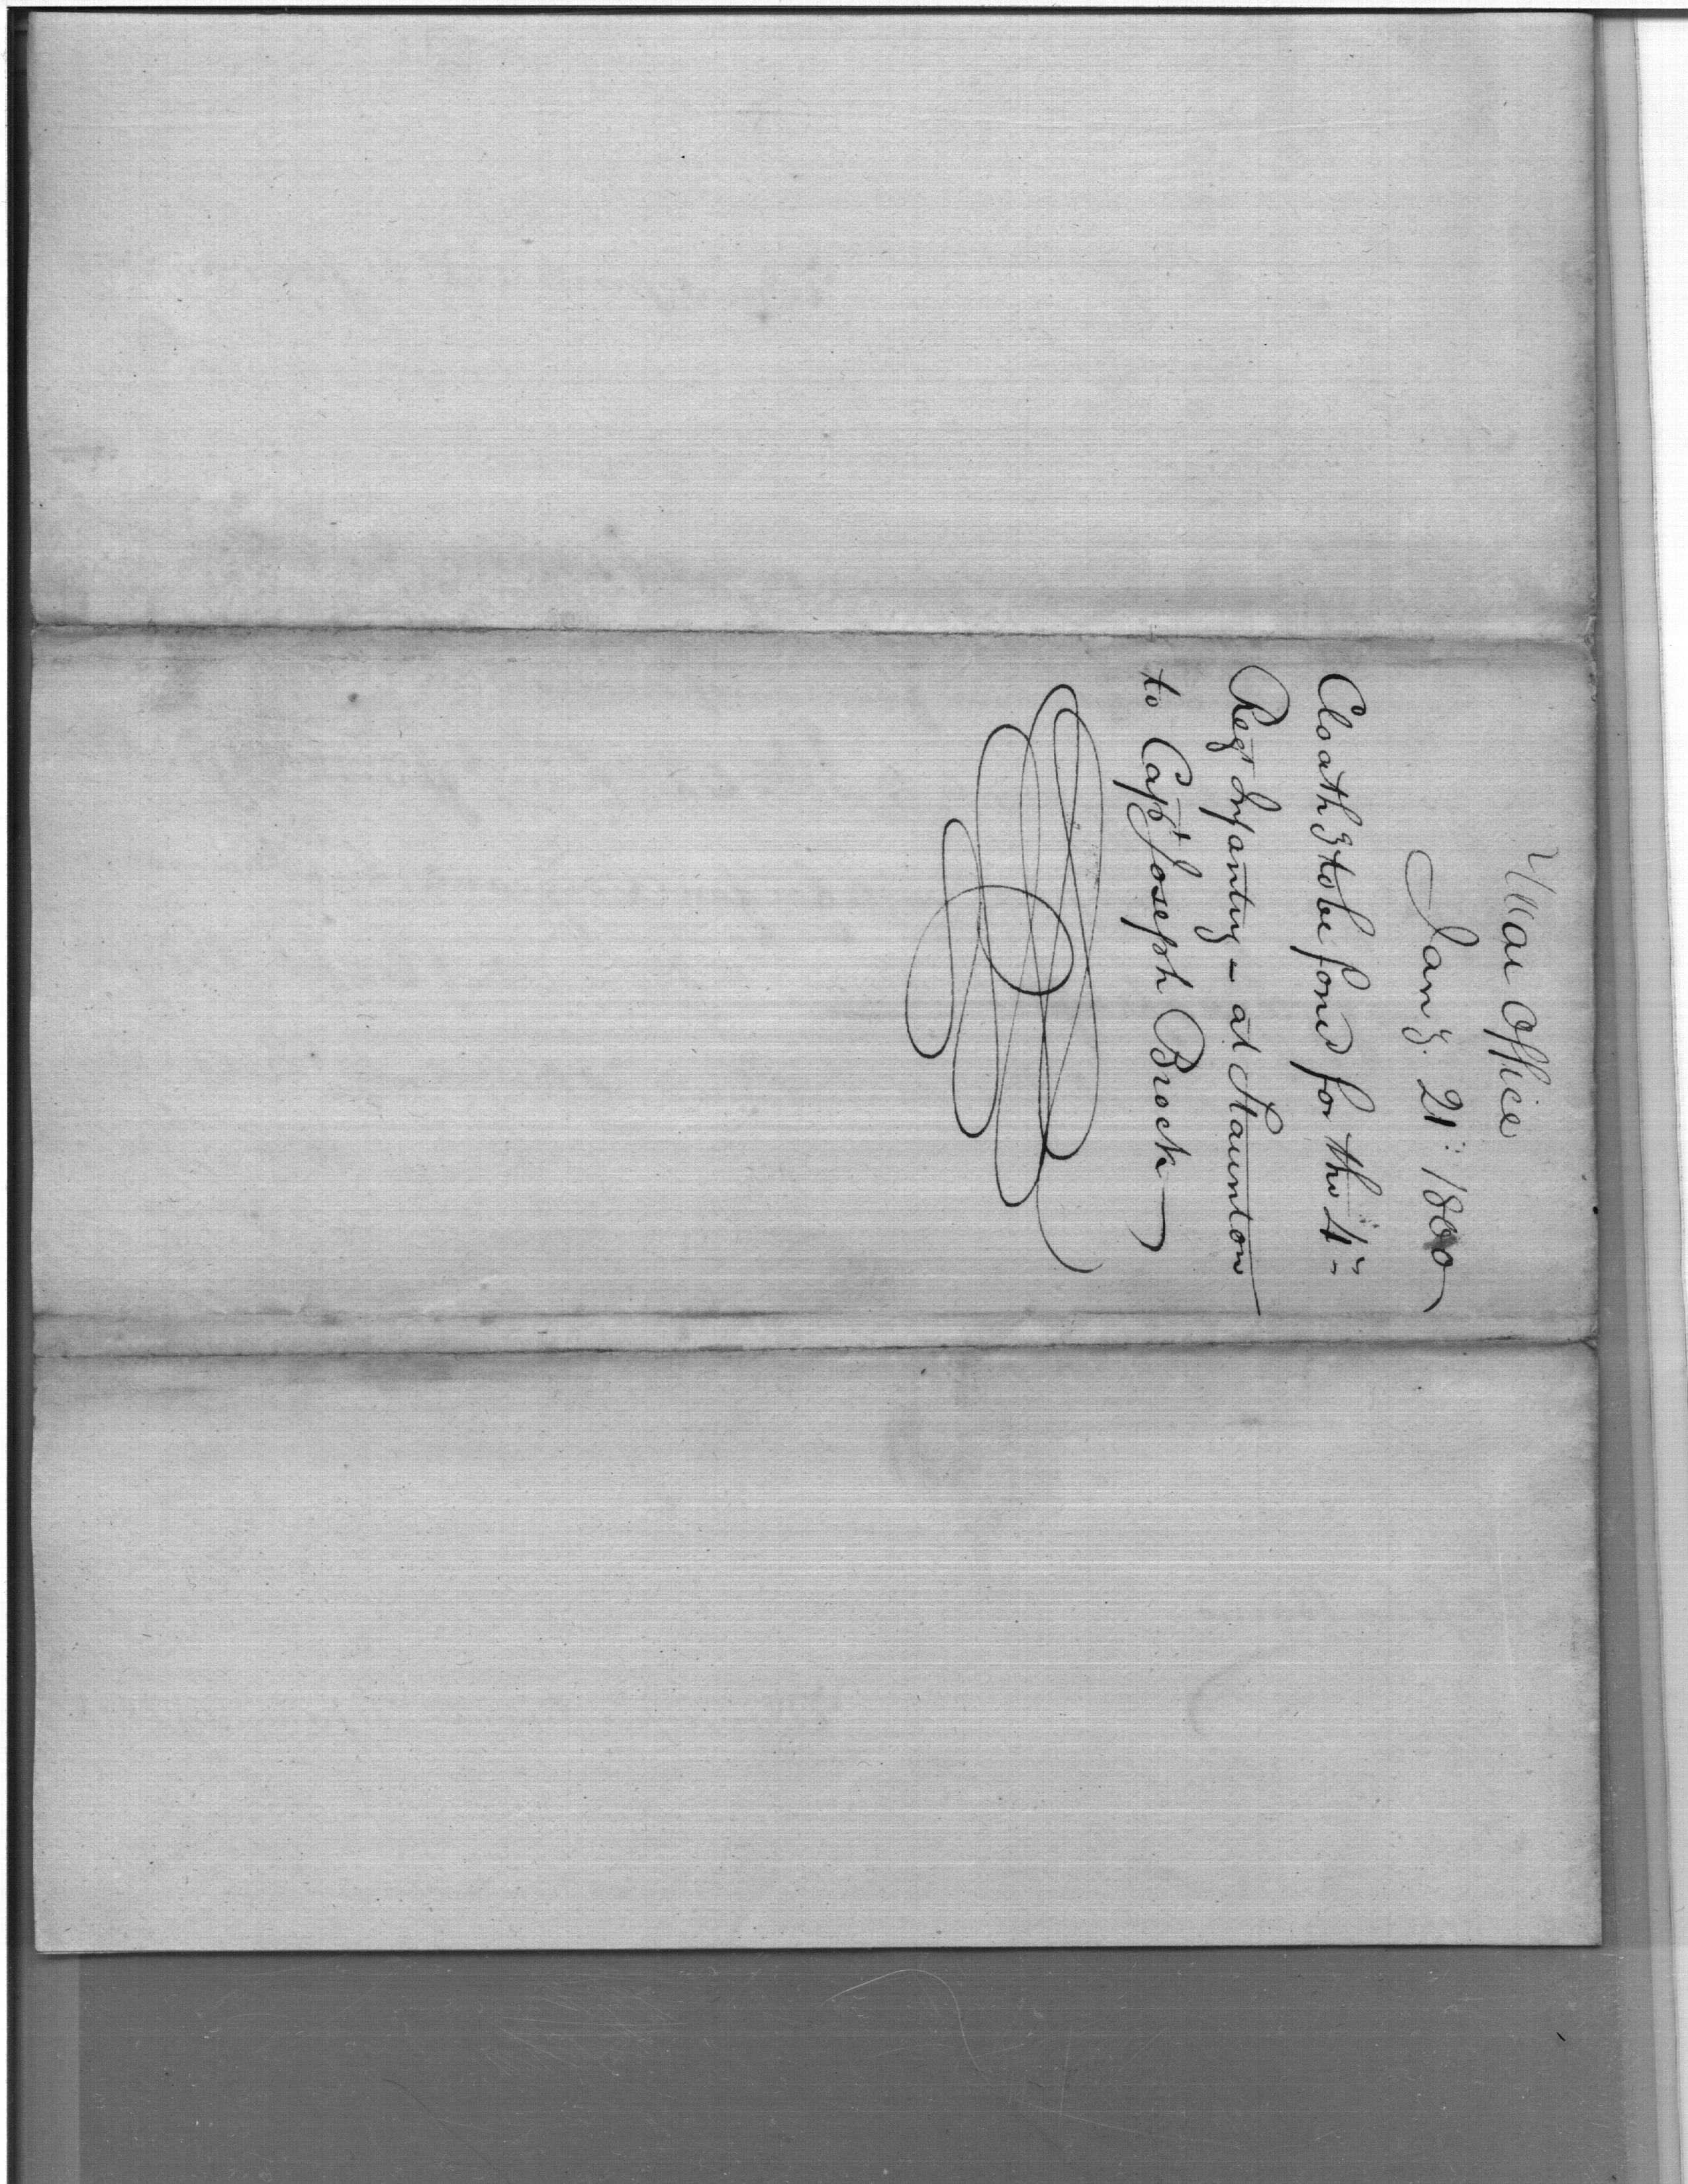 War Office
Jany. 21: 1800
Cloathg to be ford for the 4th
Regt Infantry - at Staunton
to Capt Joseph Brock